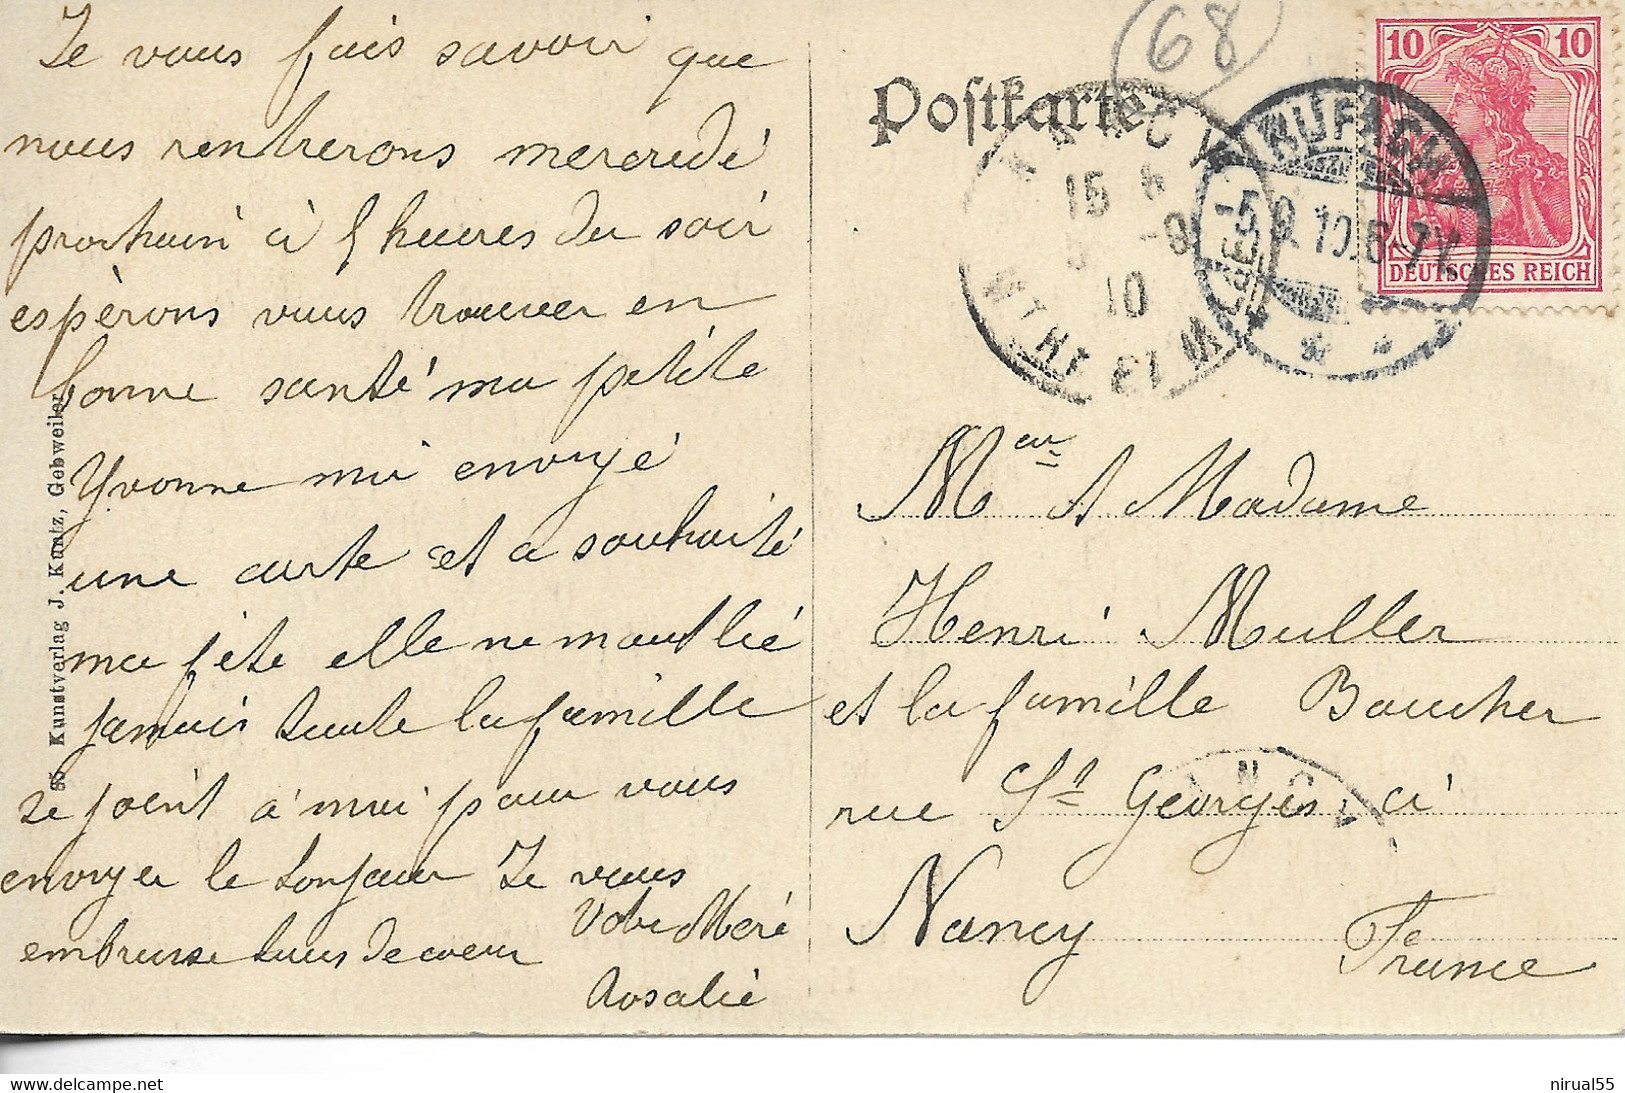 Je vous fais savoir que
nous rentrerons mercredi
prochain à 5 heures du soir
espèrons vous trouver en
bonne santé ma petite
Yvonne mà envoyé
une carte et a souhaité
ma fête elle ne moublié
jamais toute la famille
se joint à moi pour vous
envoyer le bonjour Je vous
embrasse tous de coeur
Votre Meré
Rosalie
88 Kunstverlag J. Kuntz, Gebweiler
Postkarte
68
10 10
DEUTSCHES REICH
RUFACH
-5.9.10.6-7V.
NANCY
15
10
Mr et Madame
Henri Muller
et la famille Boucher
rue St Georges à
Nancy
France
nirual55